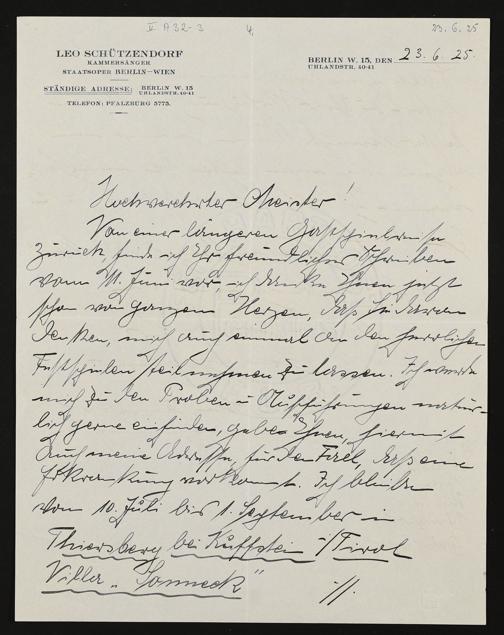 II A 32-3
4.
23. 6. 25
LEO SCHÜTZENDORF
KAMMERSÄNGER
STAATSOPER BERLIN—WIEN
STÄNDIGE ADRESSE: BERLIN W. 15
UHLANDSTR. 40-41
TELEFON: PFALZBURG 5775.
BERLIN W. 15, DEN 23. 6. 25.
UHLANDSTR. 40-41
Hochverehrter Meister!
Von einer längeren Gastspielreise
zurück, finde ich Ihr freundliches Schreiben
vom 11. Juni vor, ich danke Ihnen jetzt
schon von ganzem Herzen, daß Sie daran
denken, mich auch einmal an den herrlichen
Festspielen teilnehmen zu lassen. Ich werde
mich zu den Proben u Aufführungen natür-
lich gerne einfinden, gebe Ihnen, hiermit
auch meine Adresse, für den Fall, daß eine
Erkrankung vorkommt. Ich bleibe
vom 10. Juli bis 1. September in
Thiersberg bei Kuffstein i/Tirol
Villa „Sonneck"
·//.